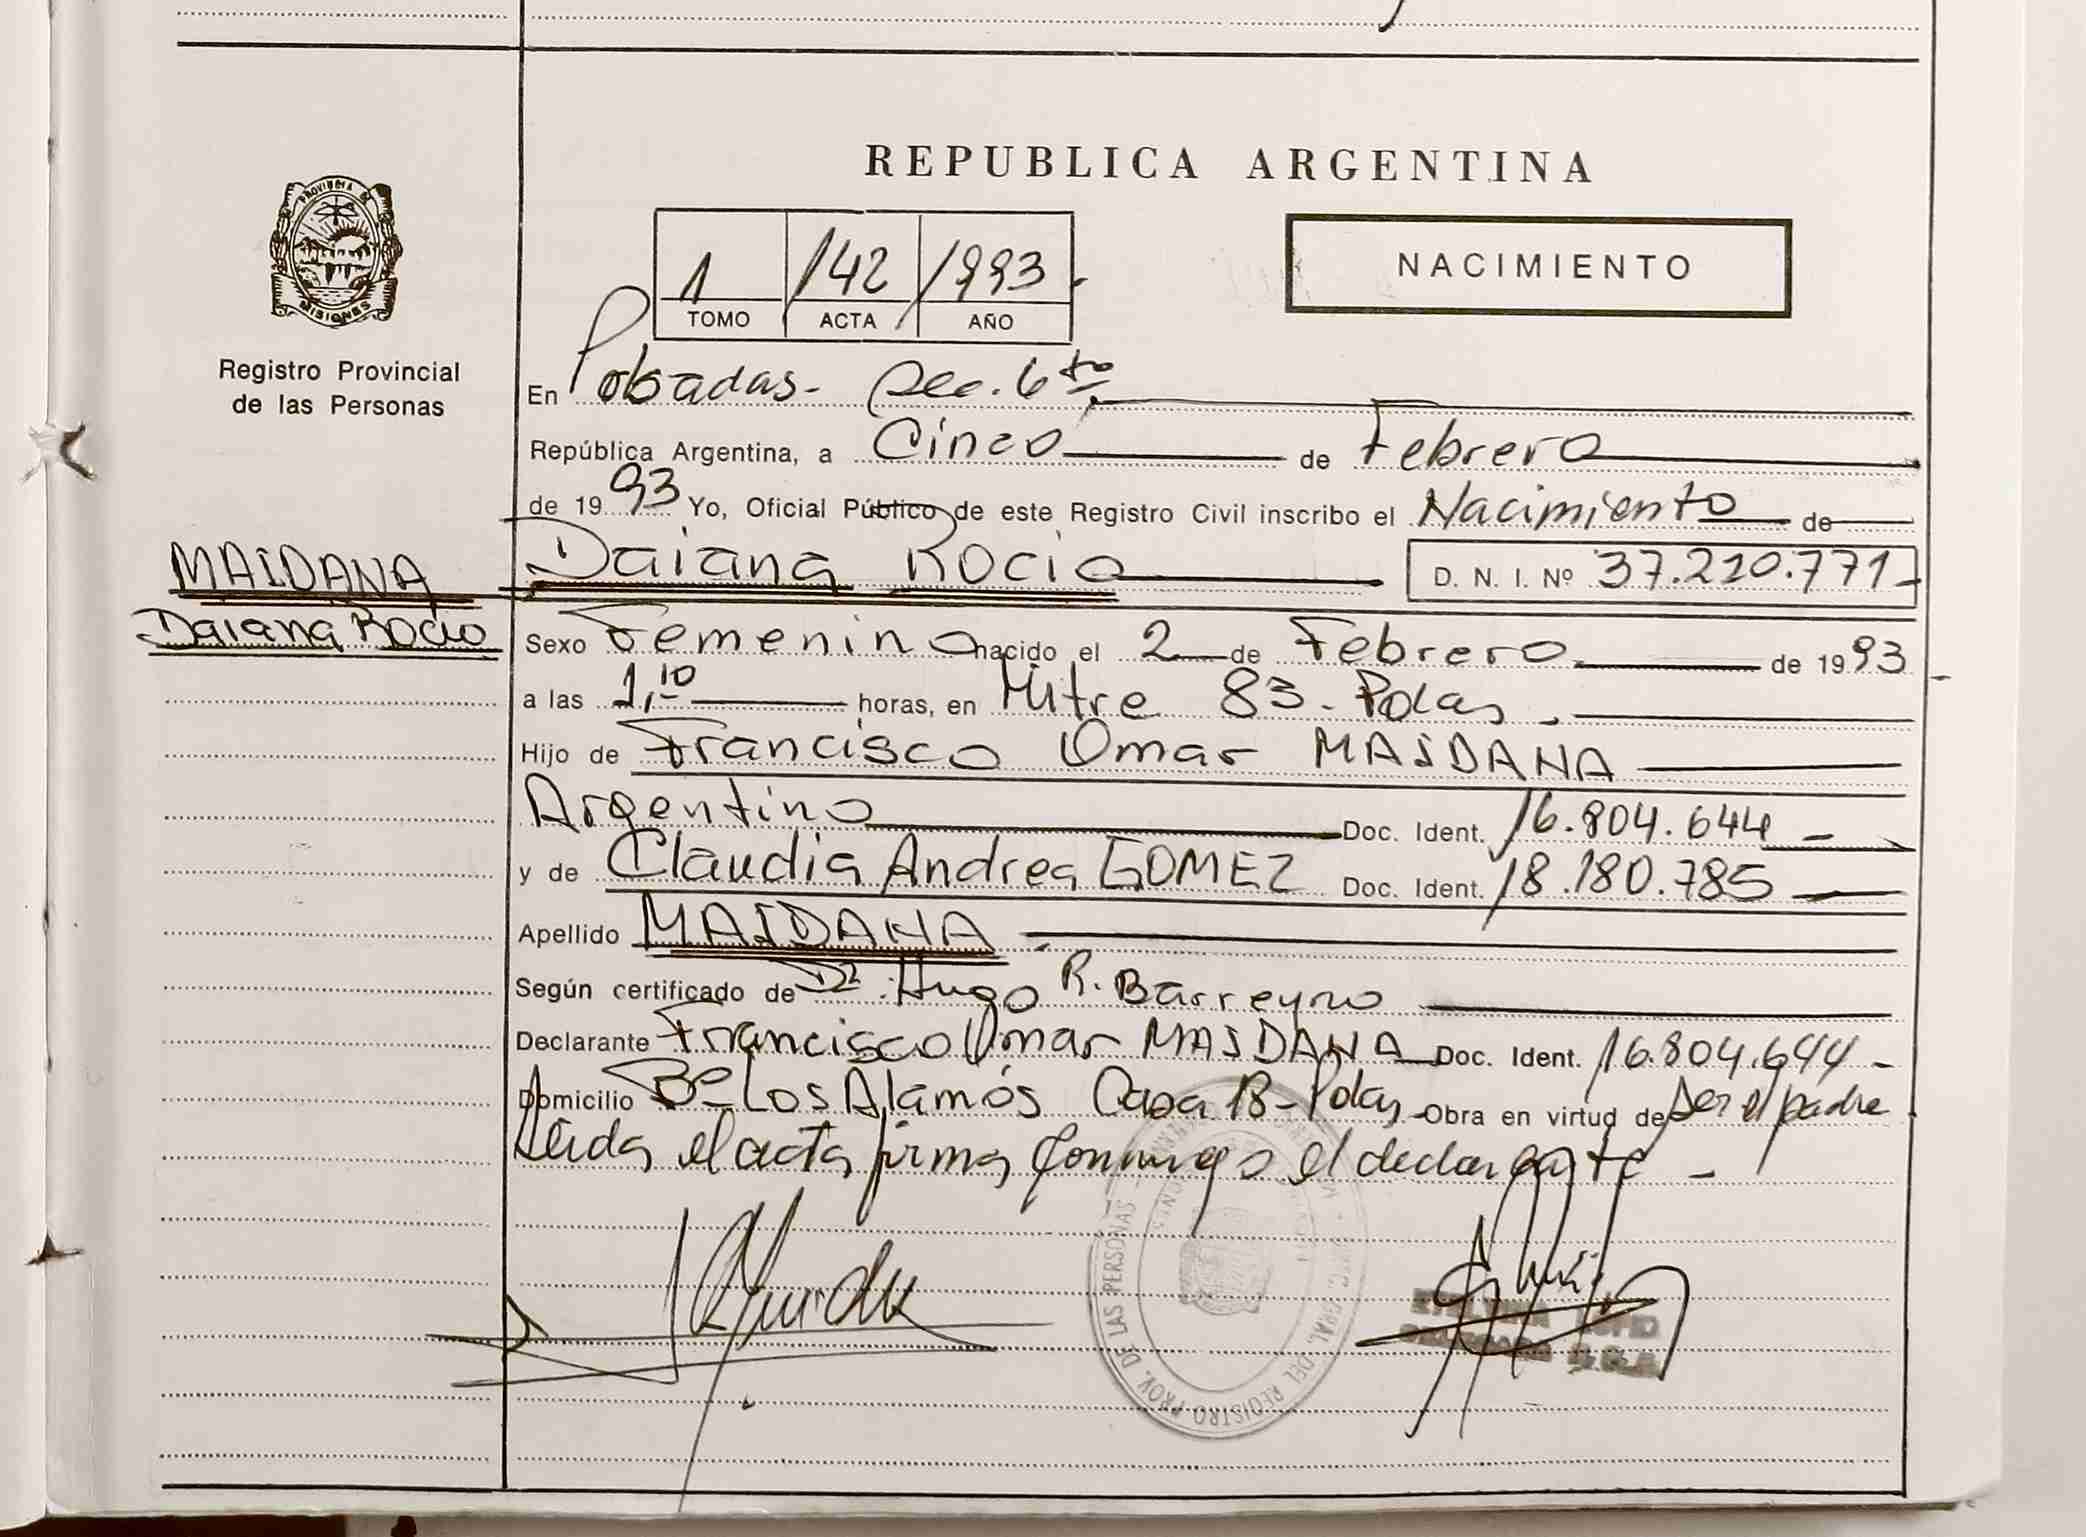 REPUBLICA ARGENTINA
PROVINCIA DE
MISIONES
Registro Provincial
de las Personas
NACIMIENTO
1 142 1993
TOMO ACTA AÑO
En Posadas- Sec. 6to
República Argentina, a Cinco de Febrero
de 1993 Yo, Oficial Público de este Registro Civil inscribo el Nacimiento de
MAIDANA
Daiana Rocio
Daiana Rocio D. N. I. Nº 37.210.771-
Sexo Femenino nacido el 2 de Febrero de 1993
a las 1,10 horas, en Mitre 83. Pdas.
Hijo de Francisco Omar MAIDANA
Argentino Doc. Ident. 16.804.644
y de Claudia Andrea GOMEZ Doc. Ident. 18.180.785
Apellido MAIDANA
Según certificado de Dr. Hugo R. Barreyro
Declarante Francisco Omar MAIDANA Doc. Ident. 16.804.644-
Domicilio Bº Los Alamós Casa 18-Pdas Obra en virtud de ser el padre
Leida el acta firma conmigo el declarante-
REGISTRO PROV. DE LAS PERSONAS